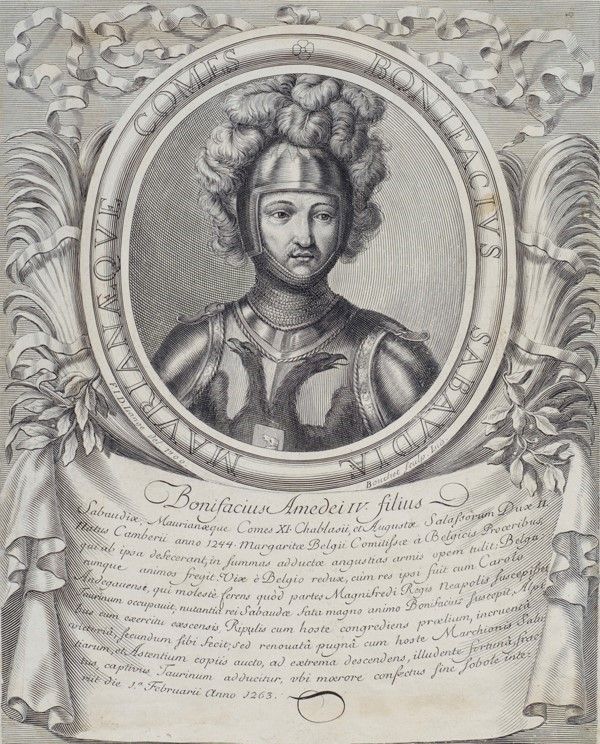 BONIFACIVS SABAVDIÆ MAVRIANÆQVE COMES
del. 1700
Sculp.
Bonifacius Amedei IV. filius
Sabaudiæ, Maurianæque Comes XI. Chablasii, et Augustæ Salassorum Dux II.
Natus Camberii anno 1244. Margaritæ Belgii Comitissæ à Belgicis Proceribus,
qui ab ipsa desecerant, in summas adductæ angustias armis opem tulit; Belga
rumque animos fregit. Vix è Belgio redux, cum res ipsi fuit cum Carolo
Andegauense, qui molestè ferens quòd partes Magnifredi Regis Neapolis suscepisset
Taurinum occupauit, nutantia rei Sabaudæ fata magno animo Bonifacius suscepit, Alpi
bus cum exercitu excensis, Ripulis cum hoste congrediens prœlium, incruentâ
victoriâ, secundum sibi fecit; sed renouatâ pugnâ cum hoste Marchionis Salu
tiarum, et Astentium copiis aucto, ad extrema descendens, illudente fortunâ, frac
tus, captivus Taurinum adducitur, vbi mœrore confectus sine sobole inte-
riit die 1.ª Februarii Anno 1263.